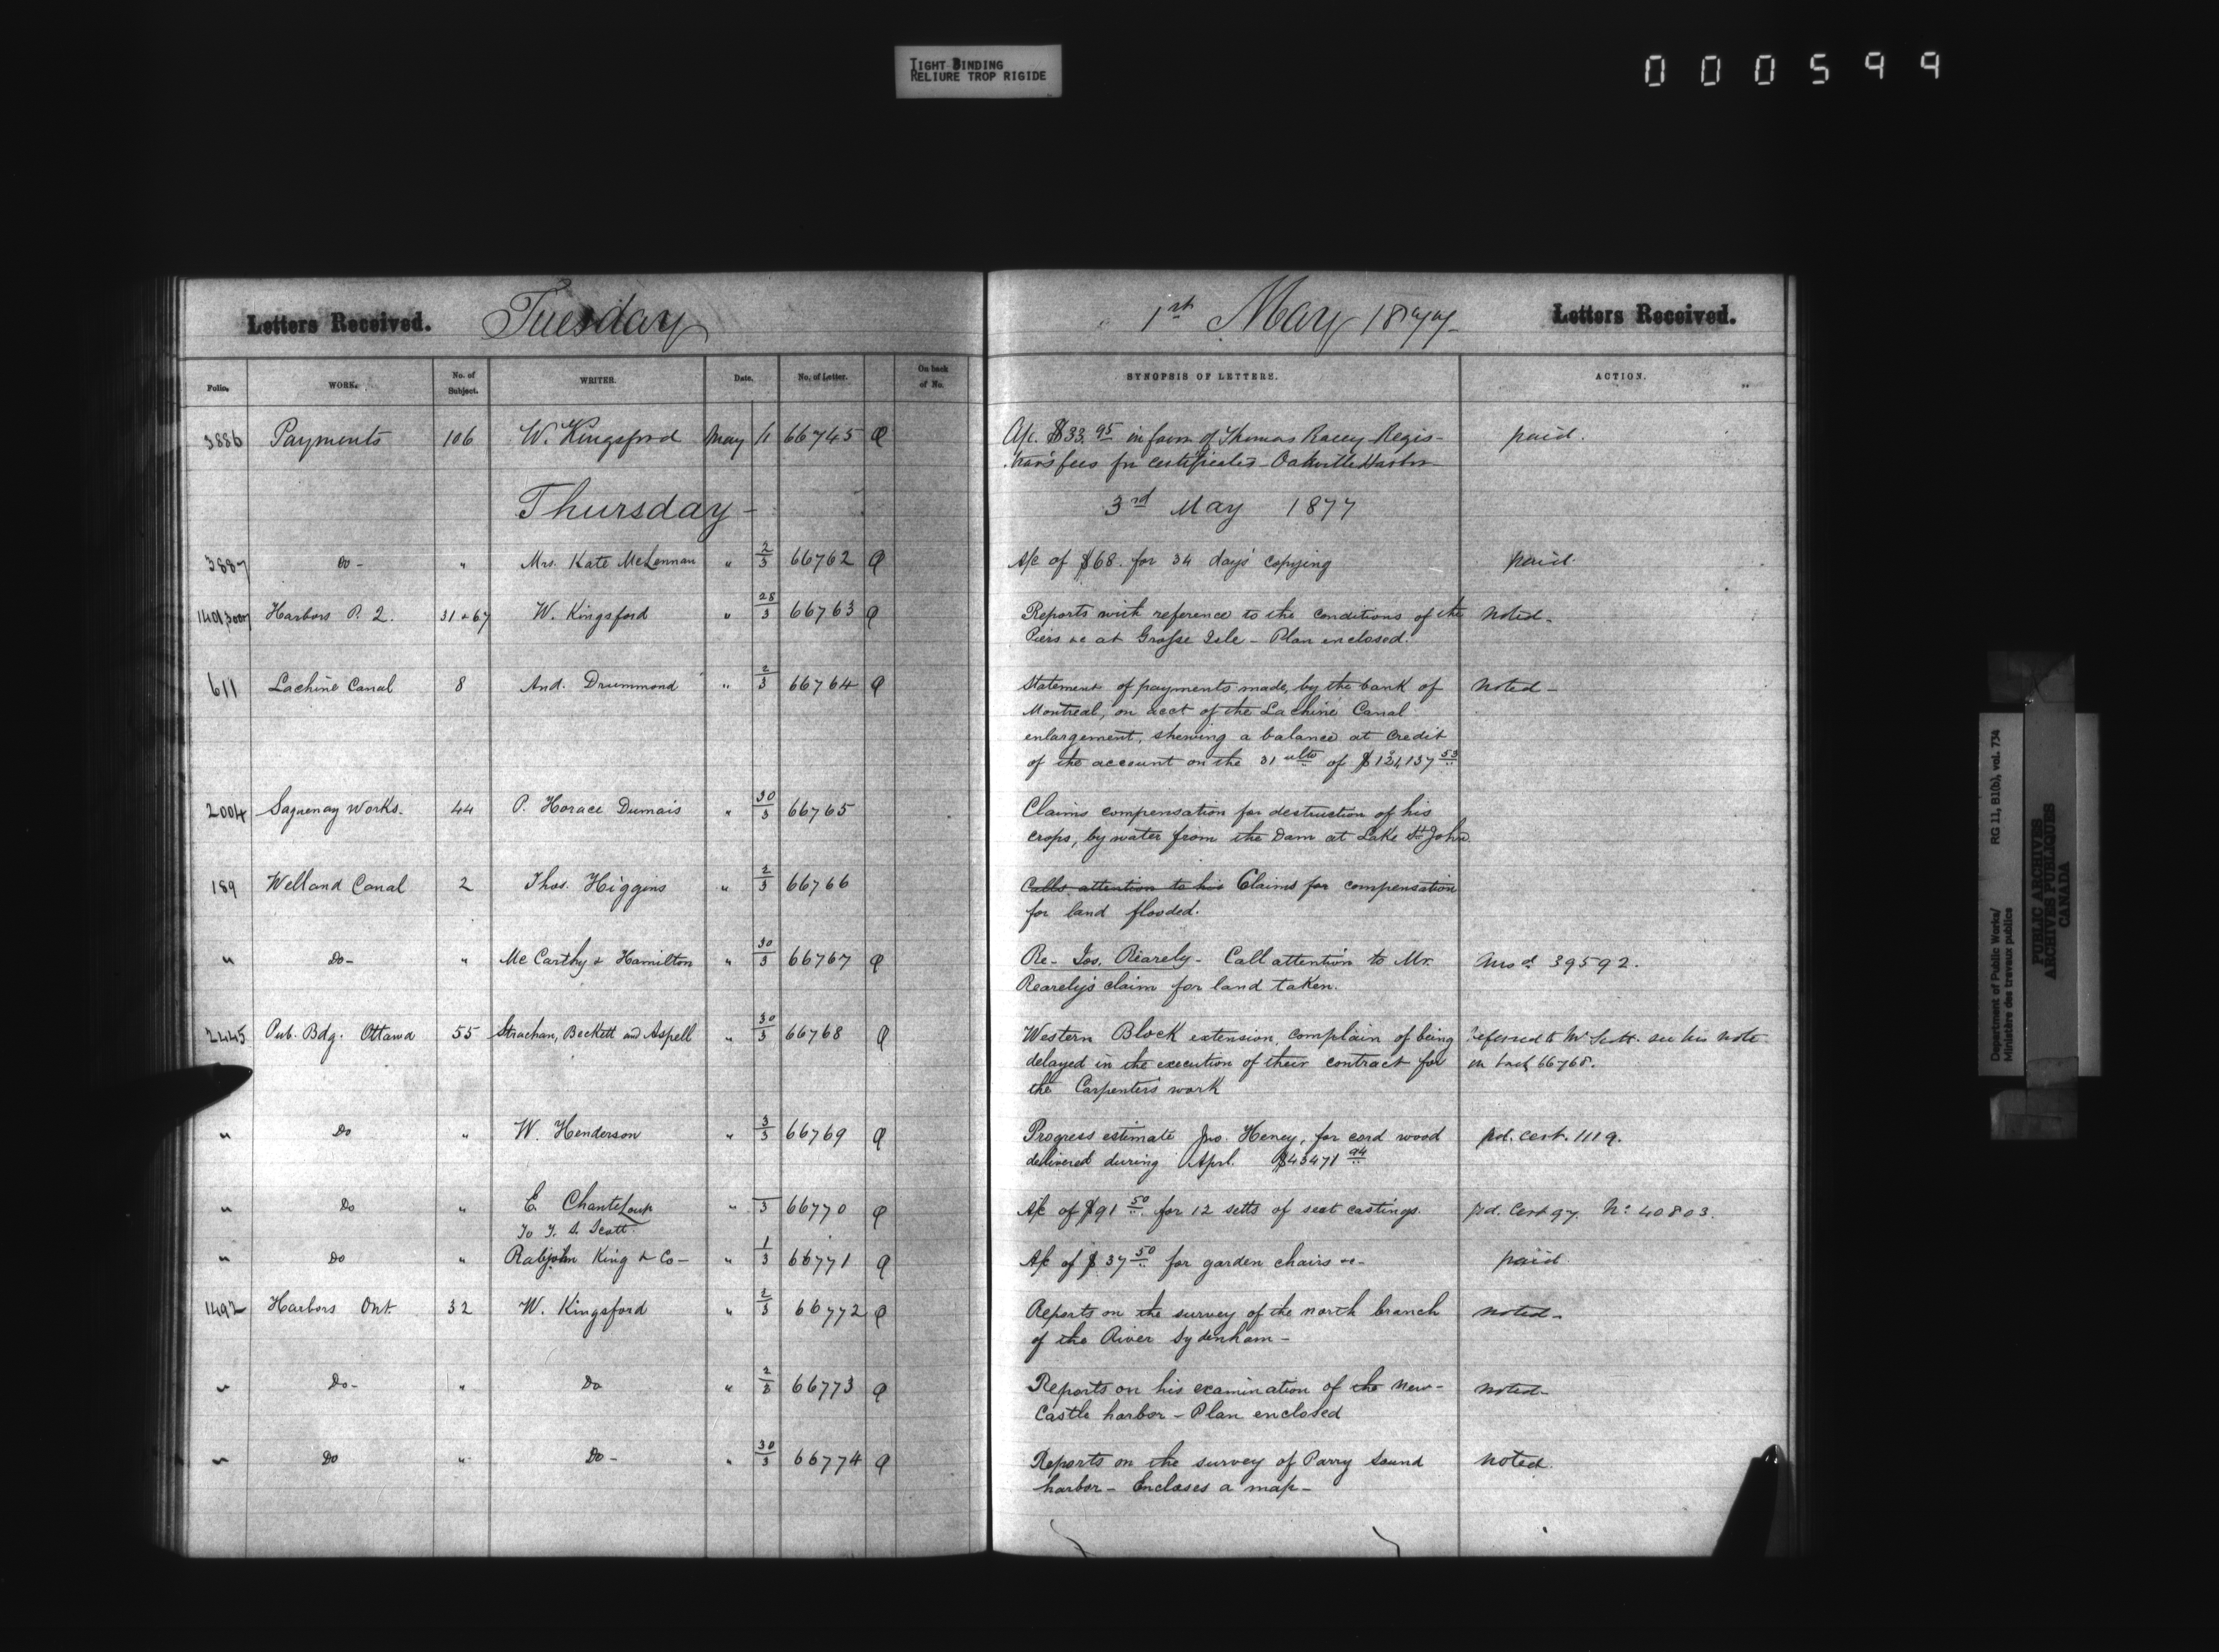 TIGHT BINDING
RELIURE TROP RIGIDE
000599
Letters Received. Tuesday 1st May 1877 Letters Received.
Folio. WORK. No. of Subject. WRITER. Date. No. of Letter. On back of No. SYNOPSIS OF LETTERS. ACTION.
3886 Payments 106 W. Kingsford May 1/1 66745 A/c. $33.95 in favor of Thomas Racey Regis- paid.
trar's fees for certificates - Oakville Harbor -
Thursday - 3rd May 1877
3887 Do - " Mrs. Kate McLennan " 2/3 66762 A/c of $68. for 34 days' copying paid.
Harbors P. 2. 31 + 67 W. Kingsford " 28/3 66763 Reports with reference to the conditions of the noted -
Piers &c at Grosse Isle - Plan enclosed.
611 Lachine Canal 8 And. Drummond " 2/3 66764 Statement of payments made, by the bank of noted -
Montreal, on acct of the Lachine Canal
enlargement, shewing a balance at credit
of the account on the 31 ulto of $121,137 53
2004 Saguenay Works. 44 P. Horace Dumais " 30/3 66765 Claims compensation for destruction of his
crops, by water from the Dam at Lake St John
189 Welland Canal 2 Thos. Higgins " 2/3 66766 Calls attention to his Claims for compensation
for land flooded.
" Do - " McCarthy & Hamilton " 30/3 66767 Re - Jos. Rearely - Call attention to Mr. Ansd 39592.
Rearely's claim for land taken.
2445 Pub. Bdg. Ottawa 55 Strachan, Beckett and Aspell " 30/3 66768 Western Block extension, complain of being referred to Mr Scott. see his note
delayed in the execution of their contract for on back 66768.
the Carpenters work
" Do " W. Henderson " 3/3 66769 Progress estimate Jno. Heney, for cord wood pd. cert. 1119.
delivered during Aprl. $43471 94
" Do " E. Chanteloup " /3 66770 A/c of $91 50 for 12 setts of seat castings. pd. Cert 97. No 40803.
To T. S. Scott.
" Do " Rabjohn King & Co - " 1/3 66771 A/c of $37 50 for garden chairs &c - paid
1492 Harbors Ont 32 W. Kingsford " 2/3 66772 Reports on the survey of the north branch noted -
of the River Sydenham -
" Do - " Do " 2/3 66773 Reports on his examination of the New- noted -
Castle harbor - Plan enclosed
" Do " Do - " 30/3 66774 Reports on the survey of Parry Sound noted.
harbor - Encloses a map -
Department of Public Works/ RG 11, B1(b), vol. 734
Ministère des travaux publics
PUBLIC ARCHIVES
ARCHIVES PUBLIQUES
CANADA